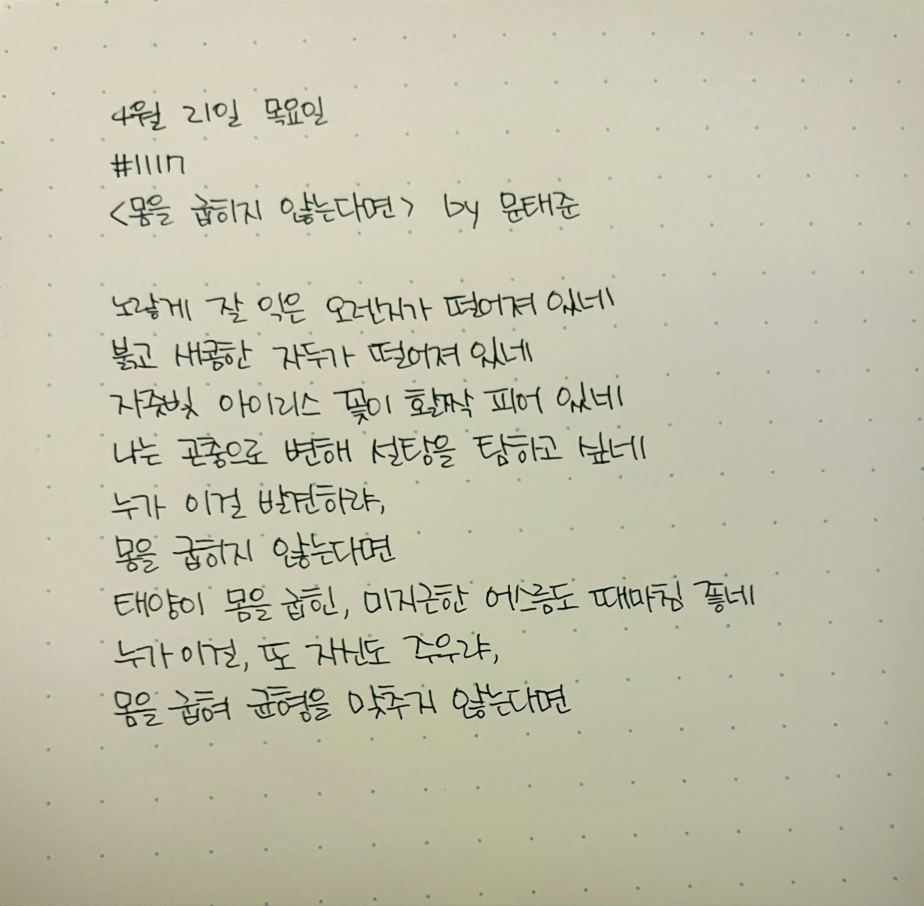 4월 21일 목요일
#1117
<몸을 굽히지 않는다면> by 문태준
노랗게 잘 익은 오렌지가 떨어져 있네
붉고 새콤한 자두가 떨어져 있네
자줏빛 아이리스 꽃이 활짝 피어 있네
나는 곤충으로 변해 설탕을 탐하고 싶네
누가 이걸 발견하랴,
몸을 굽히지 않는다면
태양이 몸을 굽힌, 미지근한 어스름도 때마침 좋네
누가 이걸, 또 자신도 주우랴,
몸을 굽혀 균형을 맞추지 않는다면